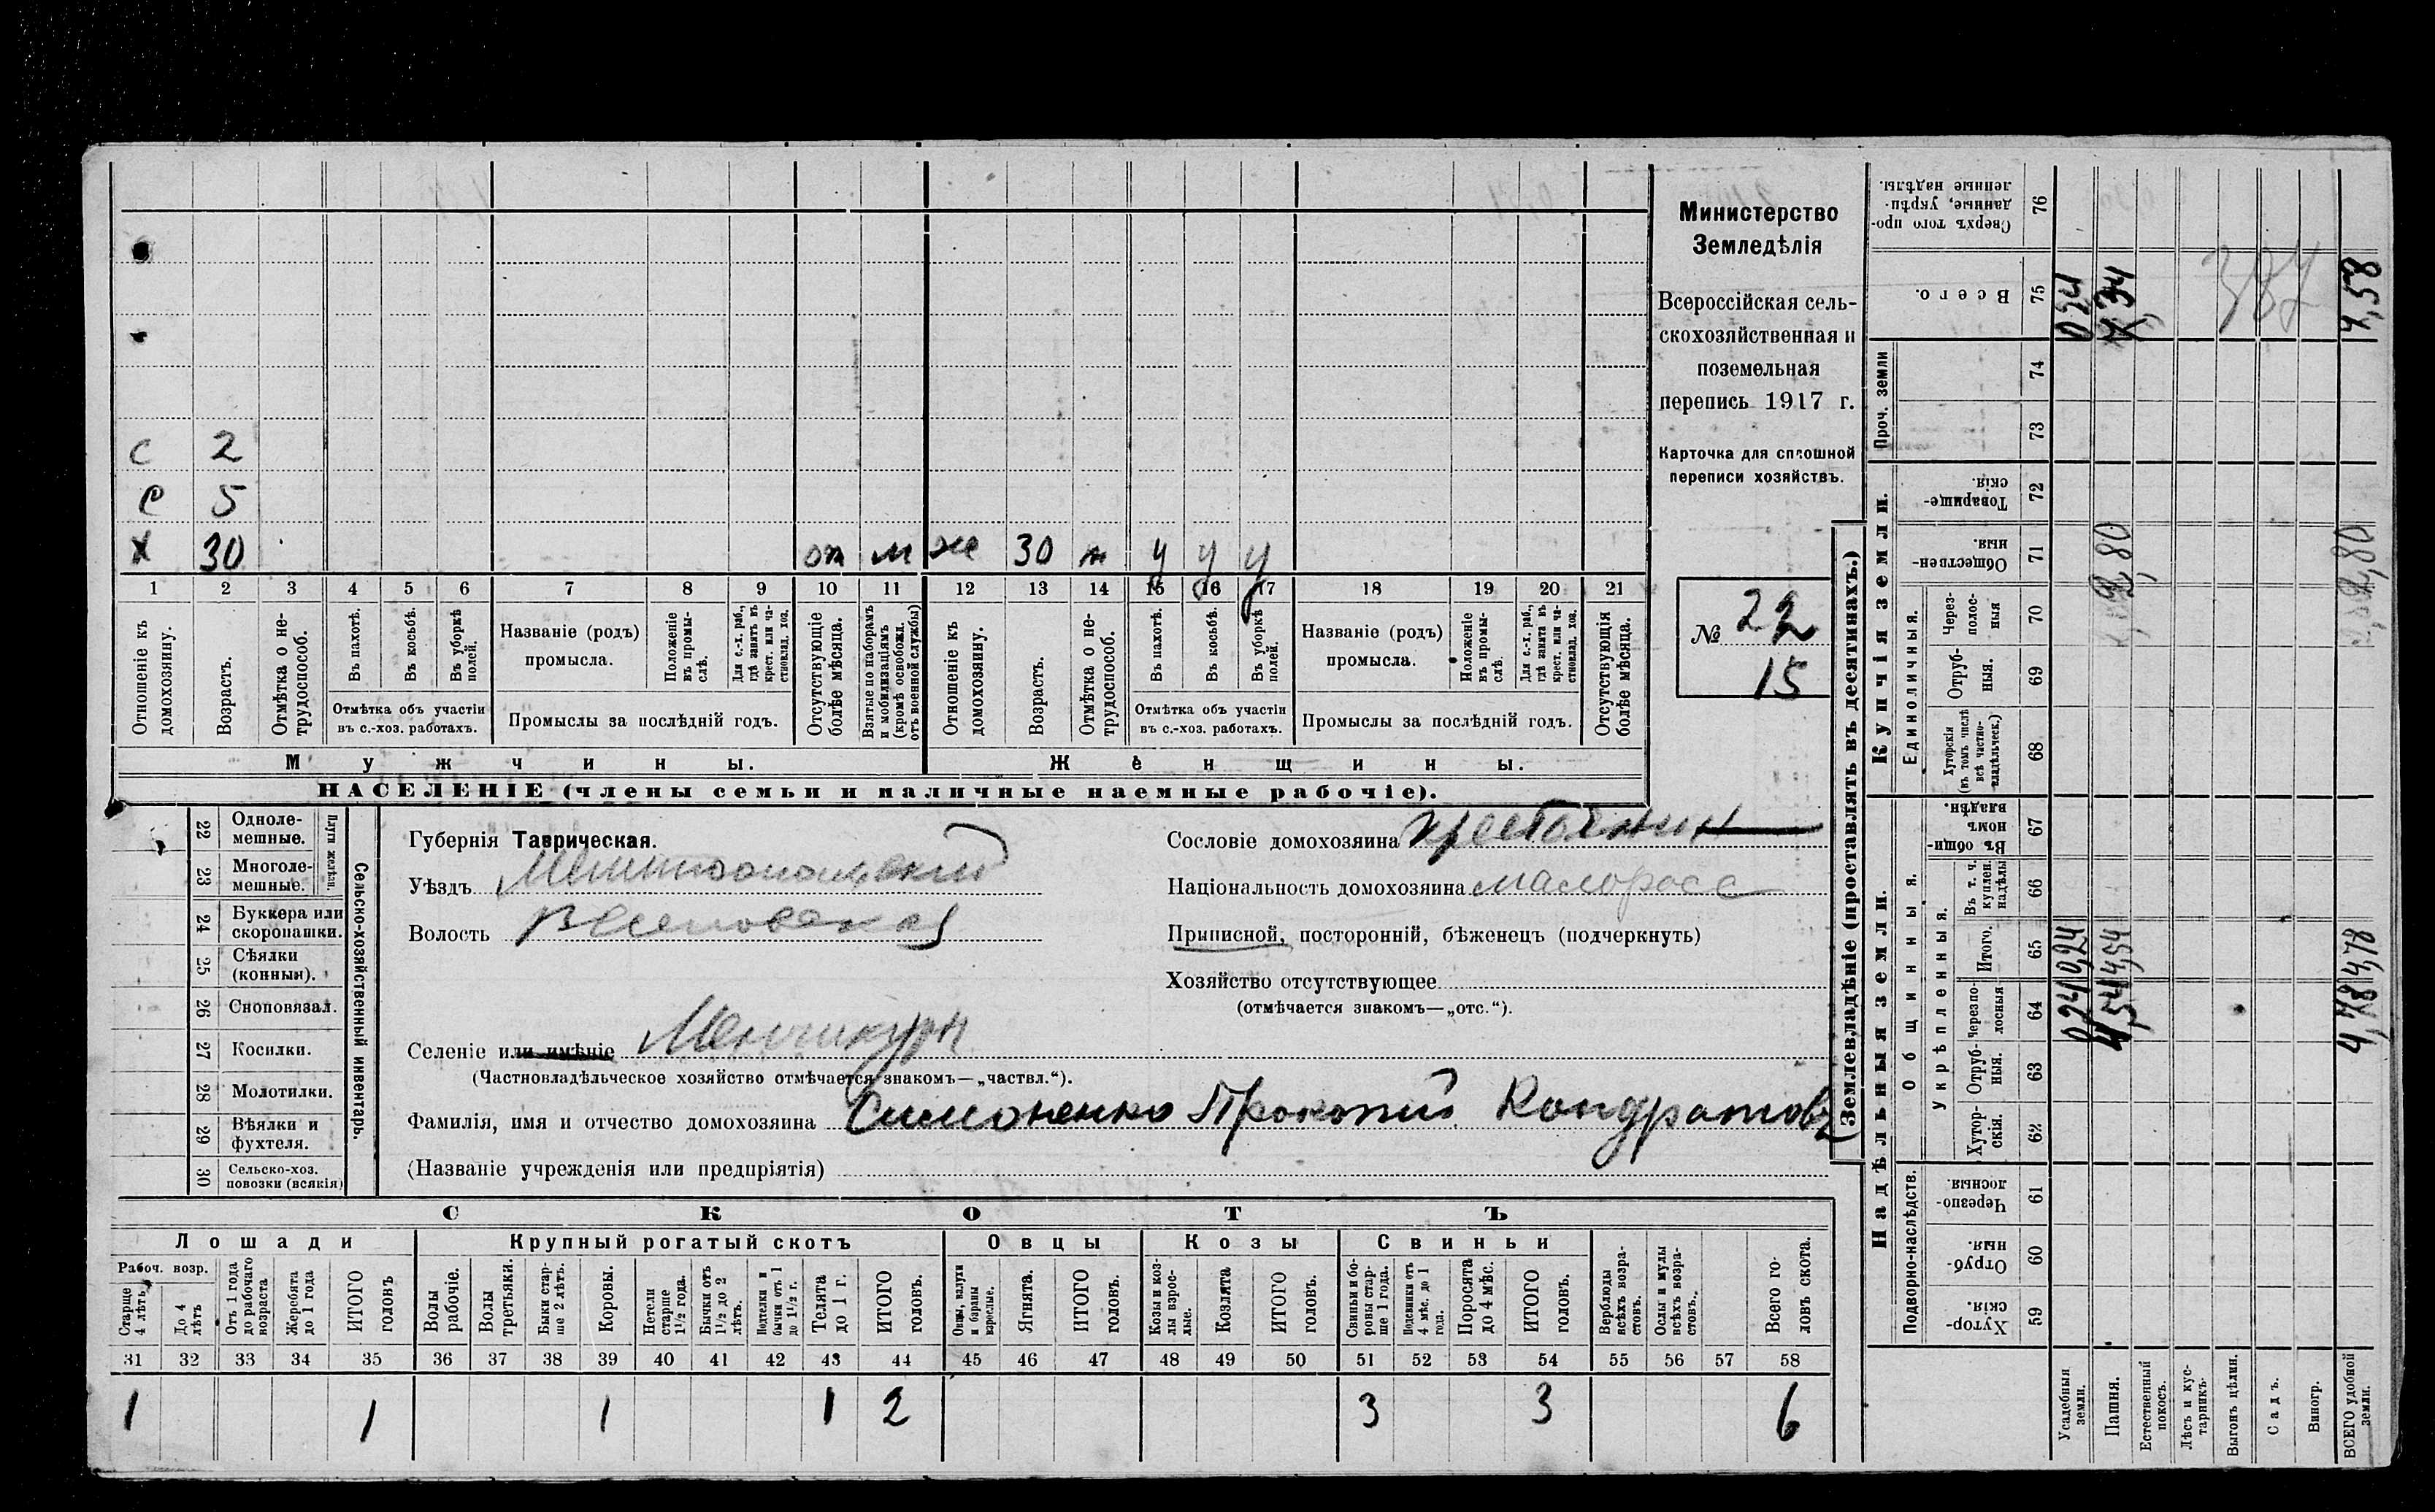 Министерство
Земледѣлія
Всероссійская сель-
скохозяйственная и
поземельная
перепись 1917 г.
Карточка для сплошной
переписи хозяйствъ.
№ 22
15
с 2
с 5
х 30 от м же 30 н у у у
1 2 3 4 5 6 7 8 9 10 11 12 13 14 15 16 17 18 19 20 21
Отношеніе къ домохозяину.
Возрастъ.
Отмѣтка о не-трудоспособ.
Въ пахотѣ.
Въ косьбѣ.
Въ уборкѣ полей.
Отмѣтка объ участіи
въ с.-хоз. работахъ.
Названіе (родъ)
промысла.
Положеніе въ промы-слѣ.
Для с.-х. раб., гдѣ занятъ въ крест. или ча-стновлад. хоз.
Промыслы за послѣдній годъ.
Отсутствующіе болѣе мѣсяца.
Взятые по наборамъ и мобилизаціямъ (кромѣ освобожд. отъ военной службы)
Отношеніе къ домохозяину.
Возрастъ.
Отмѣтка о не-трудоспособ.
Въ пахотѣ.
Въ косьбѣ.
Въ уборкѣ полей.
Отмѣтка объ участіи
въ с.-хоз. работахъ.
Названіе (родъ)
промысла.
Положеніе въ промы-слѣ.
Для с.-х. раб., гдѣ занята въ крест. или ча-стновлад. хоз.
Промыслы за послѣдній годъ.
Отсутствующія болѣе мѣсяца.
Мужчины. Женщины.
НАСЕЛЕНІЕ (члены семьи и наличные наемные рабочіе).
Сельско-хозяйственный инвентарь.
Плуги желѣзн.
22 Одноле-мешные.
23 Многоле-мешные.
24 Буккера или скоропашки.
25 Сѣялки (конныя).
26 Сноповязал.
27 Косилки.
28 Молотилки.
29 Вѣялки и фухтеля.
30 Сельско-хоз. повозки (всякія)
Губернія Таврическая.
Уѣздъ Мелитопольскій
Волость Веселовская
Селеніе или имѣніе Менчикуры
(Частновладѣльческое хозяйство отмѣчается знакомъ—„частвл.“).
Фамилія, имя и отчество домохозяина Симоненко Прокопий Кондратов
(Названіе учрежденія или предпріятія)
Сословіе домохозяина крестьянин
Національность домохозяина малоросс
Приписной, посторонній, бѣженецъ (подчеркнуть)
Хозяйство отсутствующее
(отмѣчается знакомъ—„отс.“).
СКОТЪ
Лошади Крупный рогатый скотъ Овцы Козы Свиньи
Рабоч. возр.
Старше 4 лѣтъ
До 4 лѣтъ
Отъ 1 года до рабочаго возраста
Жеребята до 1 года
ИТОГО головъ
Волы рабочіе.
Волы третьяки.
Быки стар-ше 2 лѣтъ.
Коровы.
Нетели старше 1½ года.
Бычки отъ 1½ до 2 лѣтъ.
Подтелки и бычки отъ 1 до 1½ г.
Телята до 1 г.
ИТОГО головъ.
Овцы, валухи и бараны взрослые.
Ягнята.
ИТОГО головъ.
Козы и коз-лы взрос-лые.
Козлята
ИТОГО головъ.
Свиньи и бо-ровы стар-ше 1 года.
Подсвинки отъ 4 мѣс. до 1 года.
Поросята до 4 мѣс.
ИТОГО головъ.
Верблюды всѣхъ возра-стовъ.
Ослы и мулы всѣхъ возра-стовъ.
Всего го-ловъ скота.
31 32 33 34 35 36 37 38 39 40 41 42 43 44 45 46 47 48 49 50 51 52 53 54 55 56 57 58
1 1 1 1 2 3 3 6
Землевладѣніе (проставлять въ десятинахъ.)
Надѣльныя земли. Купчія земли. Проч. земли
Подворно-наслѣдств.
Общинныя.
Укрѣпленныя.
Единоличныя.
Хутор-скія. 59
Отруб-ныя. 60
Черезпо-лосныя 61
Хутор-скія. 62
Отруб-ныя. 63
черезпо-лосныя 64
Итого. 65
Въ т. ч. куплен. надѣлы 66
Въ общи-номъ владѣн. 67
Хуторскія (въ томъ числѣ всѣ частно-владѣльческ.) 68
Отруб-ныя. 69
Через-полос-ныя 70
Обществен-ныя. 71
Товарище-скія. 72
73
74
Всего. 75
Сверхъ того про-данные, укрѣп-ленные надѣлы. 76
Усадебныя земли. 0,24 0,24 0,24
Пашня. 4,54 4,54 2,80 7,34
Естественный покосъ.
Лѣсъ и кус-тарникъ.
Выгонъ цѣлин.
Садъ.
Виногр.
ВСЕГО удобной земли. 4,78 4,78 2,80 7,58
387